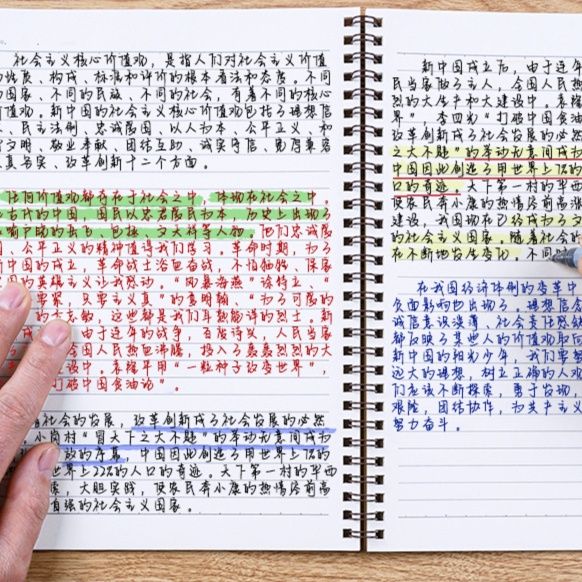 社会主义核心价值观，是指人们对社会主义价值
性质、构成、标准和评价的根本看法和态度。不同
国家、不同的民族、不同的社会，有着不同的核心
价值观。新中国的社会主义核心价值观包括了理想信
、民主法制、忠诚爱国、以人为本、公平正义、和
文明、敬业奉献、团结互助、诚实守信、勤俭
真务实、改革创新十二个方面。
任何价值观都存在于社会之中，体现在社会之中。
的中国，国以忠君爱民为本，历史上出现了
的岳飞、包拯、文天祥等人物。他们忠诚爱
，公平正义的精神值得我们学习。革命时期，为了
新中国的成立，革命战士浴血奋战，不怕牺牲、保家
国的英雄主义让我感动。“风暴海燕”徐特立、“
要紧，只要主义真”的夏明翰、“为了可爱的
”的方志敏，这些都是我们耳熟能详的烈士。新
，由于连年的战争，百废待兴，人民当家
全国人民热血沸腾，投入了轰轰烈烈的大
设中。袁隆平用“一粒种子改变世界”，
打破中国贫油论”。
着社会的发展，改革创新成了社会发展的必然
。小岗村“冒天下之大不韪”的举动无意间成为
放的序幕，中国因此创造了用世界上7%的
世界上22%的人口的奇迹。天下第一村的华西
索，大胆实践，使农民奔小康的热情空前高
富强的社会主义国家。
新中国成立后，由于连年
民当家做了主人，全国人民热
烈的大生产和大建设中。袁隆
”，李四光“打破中国贫油
改革创新成了社会发展的必然
之大不韪”的举动无意间成为
中国因此创造了用世界上7%
口的奇迹。天下第一村的华
使农民奔小康的热情空前高涨
建设，我国现在已经成为了
的社会主义国家。随着社会的
在不断地发生变化，不同
在我国经济体制的变革中
负面影响也出现了，理想信念
诚信意识淡薄、社会责任感缺
都反映了某些人的价值观取向
新中国的阳光少年，我们要努
远大的理想，树立正确的人
们应该不断探索，勇于发现，
艰险，团结协作，为共产主义
努力奋斗。